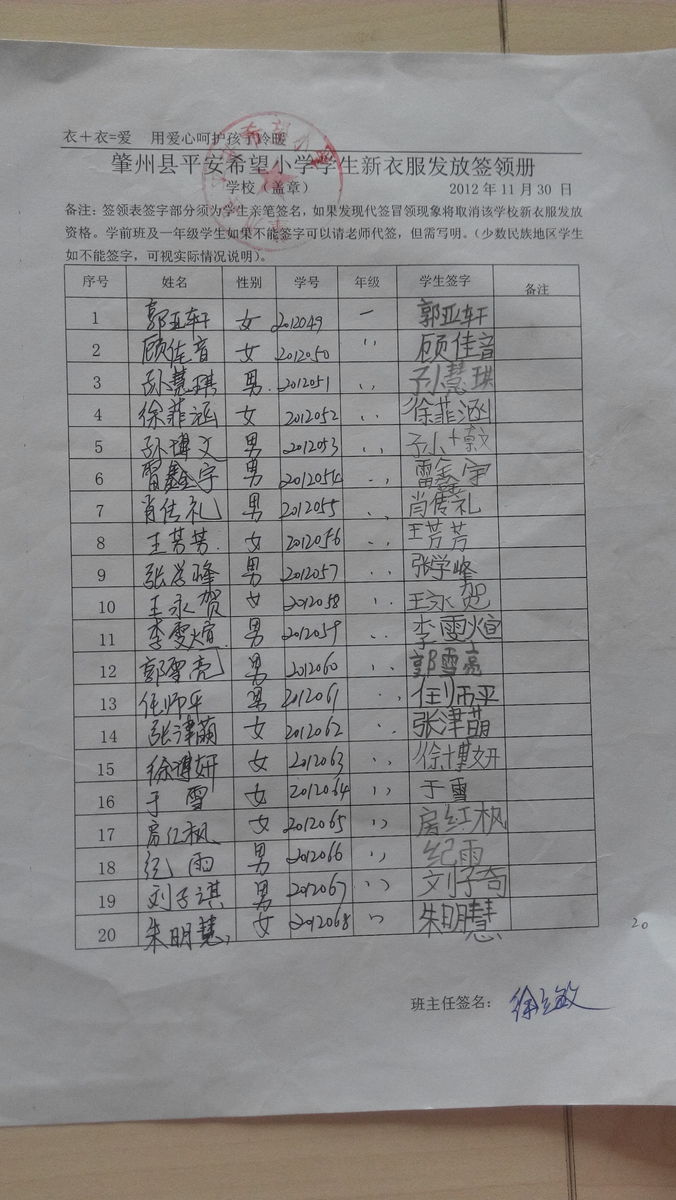 衣＋衣=爱 用爱心呵护孩子冷暖
肇州县平安希望小学学生新衣服发放签领册
学校（盖章） 2012年11月30日
备注：签领表签字部分须为学生亲笔签名，如果发现代签冒领现象将取消该学校新衣服发放
资格。学前班及一年级学生如果不能签字可以请老师代签，但需写明。（少数民族地区学生
如不能签字，可视实际情况说明）。
序号 姓名 性别 学号 年级 学生签字 备注
1 郭亚轩 女 2012049 一 郭亚轩
2 顾佳音 女 2012050 〃 顾佳音
3 孙慧琪 男 2012051 〃 孙慧琪
4 徐菲涵 女 2012052 〃 徐菲涵
5 孙博文 男 2012053 〃 孙博文
6 雷鑫宇 男 2012054 〃 雷鑫宇
7 肖传礼 男 2012055 〃 肖传礼
8 王芳芳 女 2012056 〃 王芳芳
9 张学峰 男 2012057 〃 张学峰
10 王永贺 女 2012058 〃 王永贺
11 李雯煊 男 2012059 〃 李雯煊
12 郭雪亮 男 2012060 〃 郭雪亮
13 任师平 男 2012061 〃 任师平
14 张津萌 女 2012062 〃 张津萌
15 徐博妍 女 2012063 〃 徐博妍
16 于雪 女 2012064 〃 于雪
17 房红枫 女 2012065 〃 房红枫
18 纪雨 男 2012066 〃 纪雨
19 刘子淇 男 2012067 〃 刘子奇
20 朱明慧 女 2012068 〃 朱明慧
20
班主任签名： 徐立敏